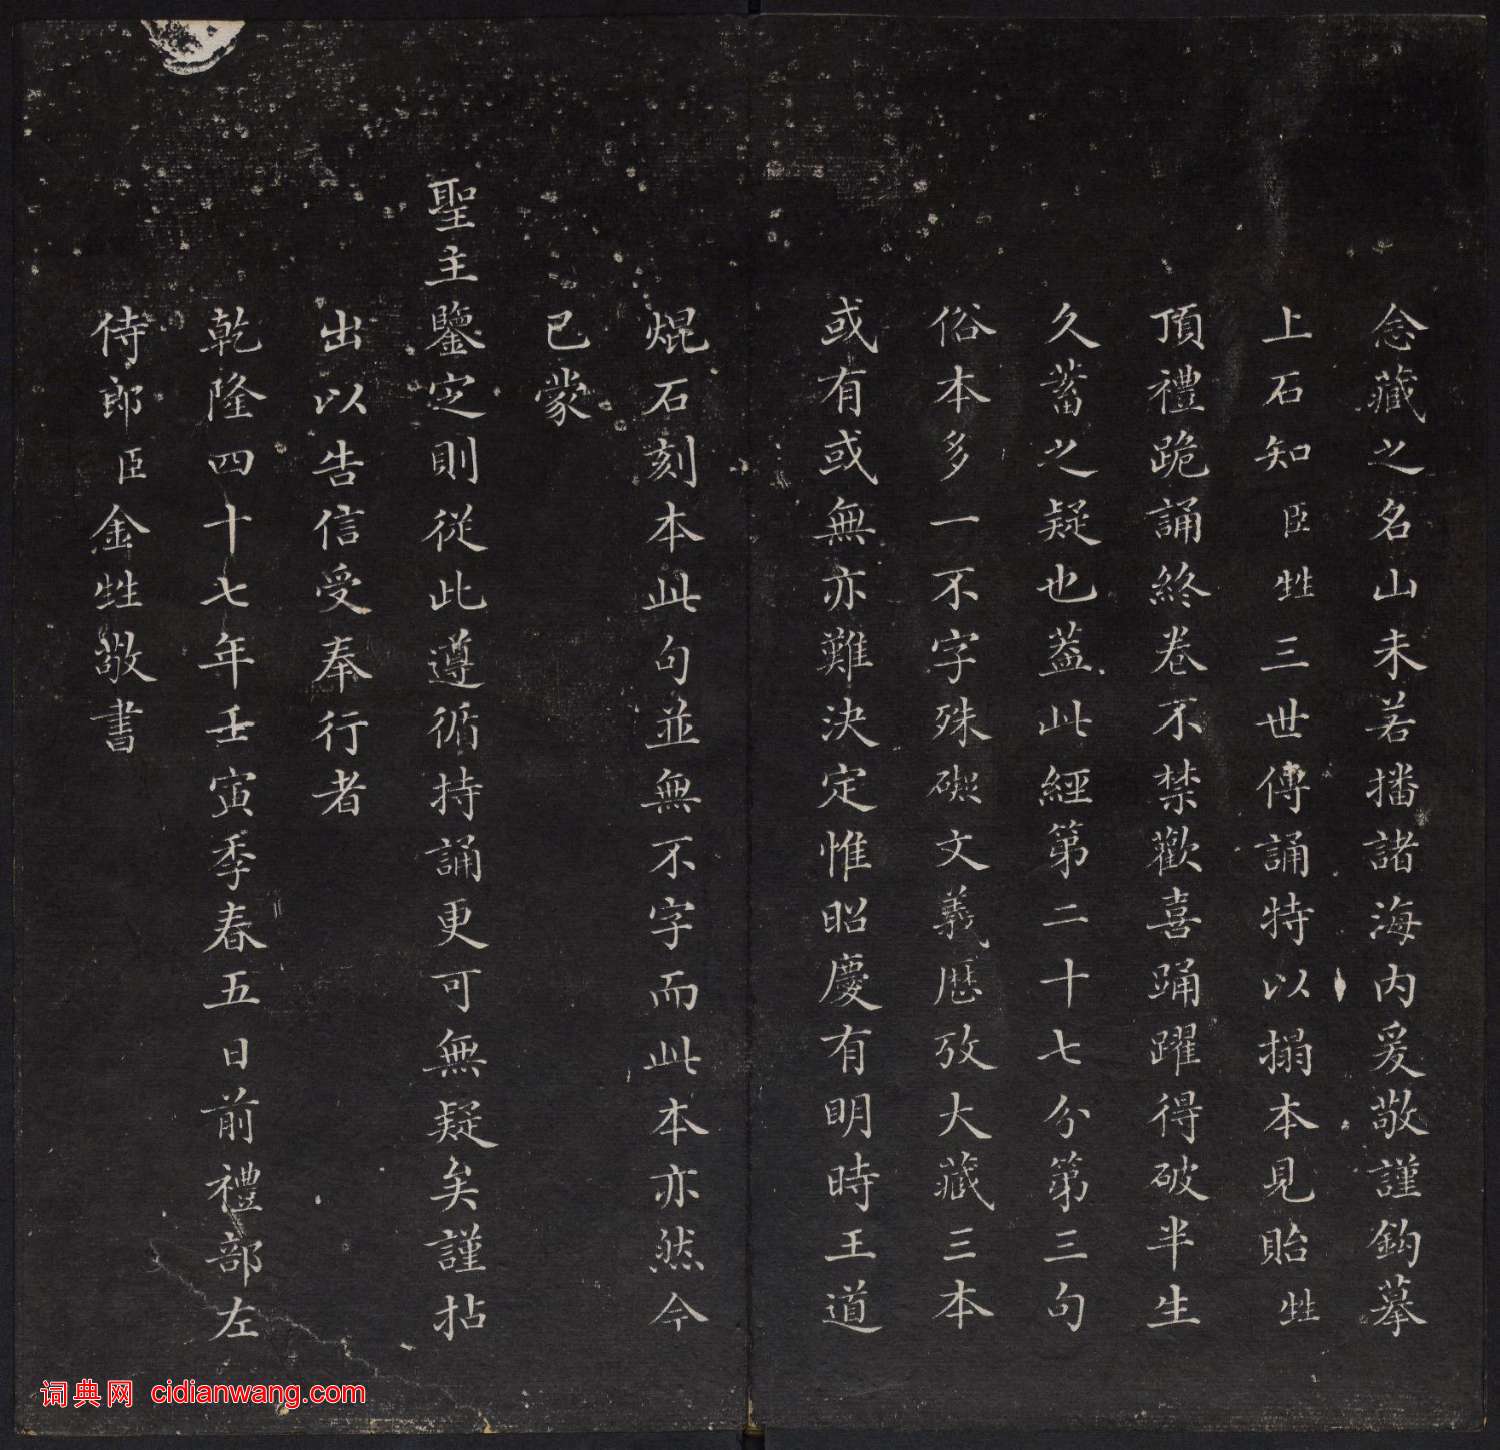 念藏之名山未若播諸海内爰敬謹鈎摹
上石知臣甡三世傳誦特以搨本見貽甡
頂禮跪誦終卷不禁歡喜踊躍得破半生
久蓄之疑也蓋此經第二十七分第三句
俗本多一不字殊礙文義歷攷大藏三本
或有或無亦難決定惟昭慶有明時王道
焜石刻本此句並無不字而此本亦然今
已蒙
聖主鑒定則從此遵循持誦更可無疑矣謹拈
出以告信受奉行者
乾隆四十七年壬寅季春五日前禮部左
侍郎臣金甡敬書
词典网 cidianwang.com